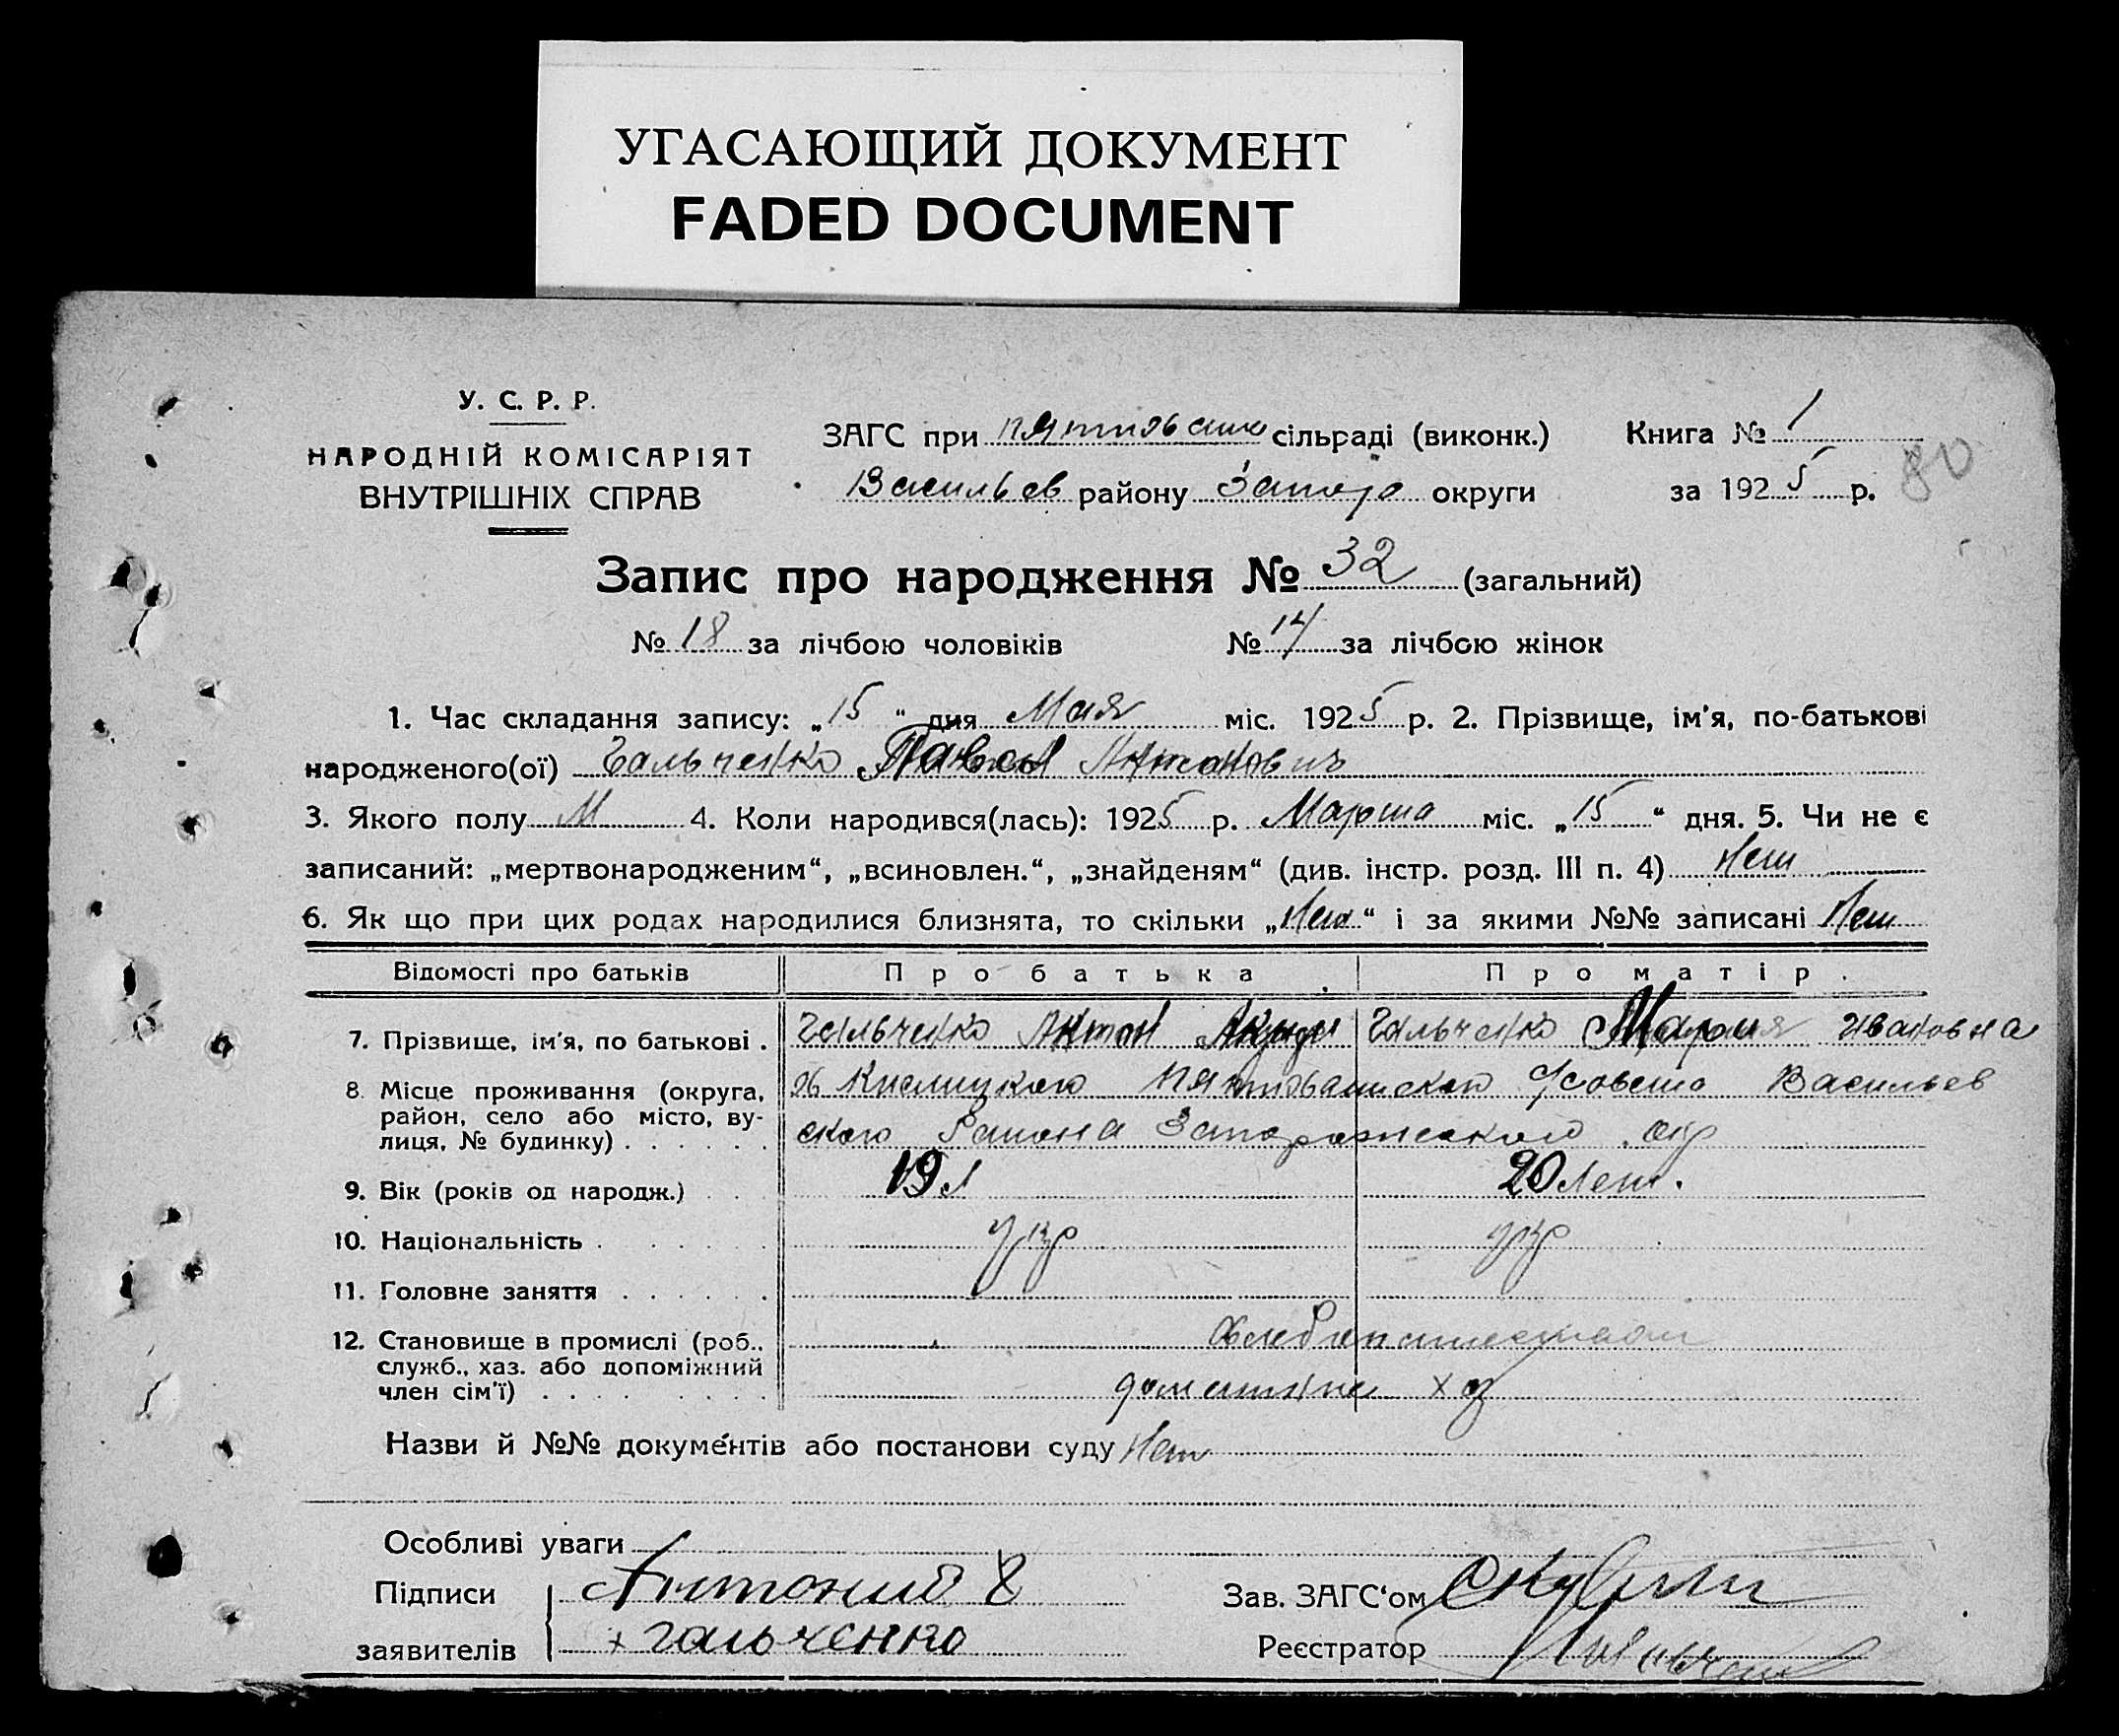 УГАСАЮЩИЙ ДОКУМЕНТ
FADED DOCUMENT
У. С. Р. Р.
НАРОДНІЙ КОМІСАРІЯТ
ВНУТРІШНІХ СПРАВ
ЗАГС при сільраді (виконк.)
Васильев району Запоро округи
Книга № 1
за 1925 р.
80
Запис про народження № 32 (загальний)
№ 18 за лічбою чоловіків № 14 за лічбою жінок
1. Час складання запису: „15“ дня Мая міс. 1925 р. 2. Прізвище, ім'я, по-батькові
народженого(ої) Гальченко Павел Антонович
3. Якого полу М 4. Коли народився(лась): 1925 р. Марта міс. „15“ дня. 5. Чи не є
записаний: „мертвонародженим“, „всиновлен.“, „знайденям“ (див. інстр. розд. III п. 4) Нет
6. Як що при цих родах народилися близнята, то скільки „Нет“ і за якими №№ записані Нет
Відомості про батьків Про батька Про матір.
7. Прізвище, ім'я, по батькові . Гальченко Антон Гальченко Мария Ивановна
8. Місце проживання (округа, район, село або місто, вулиця, № будинку) . . . . . . Васильев
ского Района Запорожского окр
9. Вік (років од народж.) . . 19 л 20 лет.
10. Національність . . . . . укр укр
11. Головне заняття . . . . . .
12. Становище в промислі (роб., служб., хаз. або допоміжний член сім'ї) . . . . . . . . . Хлебопашество
домашне хоз
Назви й №№ документів або постанови суду Нет
Особливі уваги
Підписи заявителів Антоний
+ Гальченко
Зав. ЗАГС'ом
Реєстратор